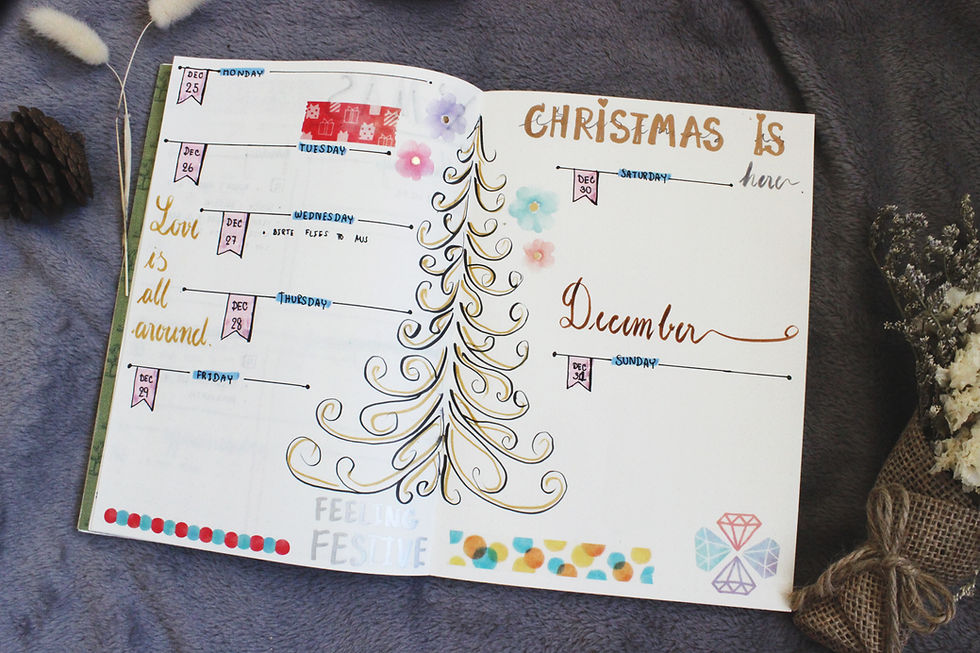 DEC
25
MONDAY
DEC
26
TUESDAY
DEC
27
WEDNESDAY
• BIRIE FLIES TO MUS
Love
is
all
around.
DEC
28
THURSDAY
DEC
29
FRIDAY
FEELING
FESTIVE
CHRISTMAS IS
here.
DEC
30
SATURDAY
December
DEC
31
SUNDAY